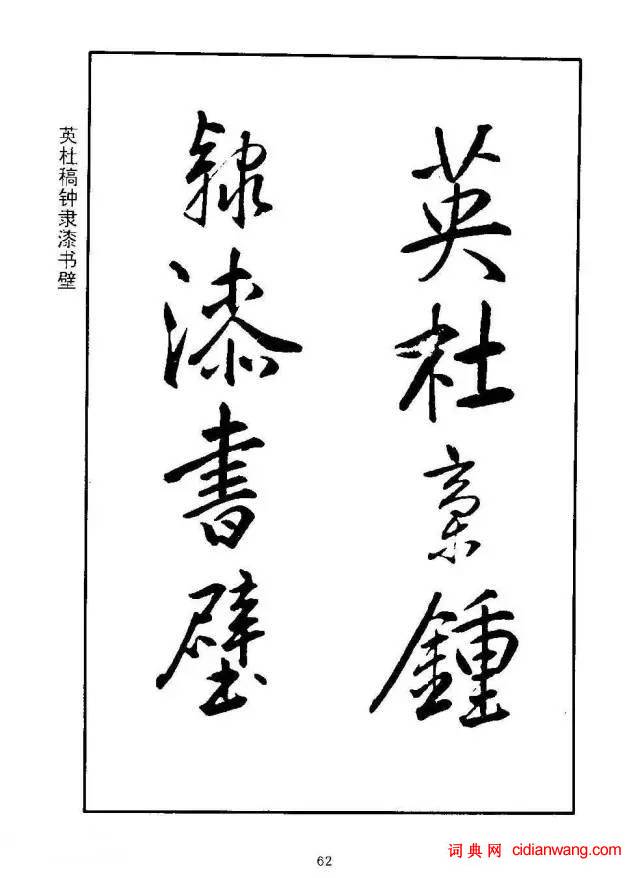 英杜稾鍾
隸漆書壁
英杜稿钟隶漆书壁
62
词典网 cidianwang.com